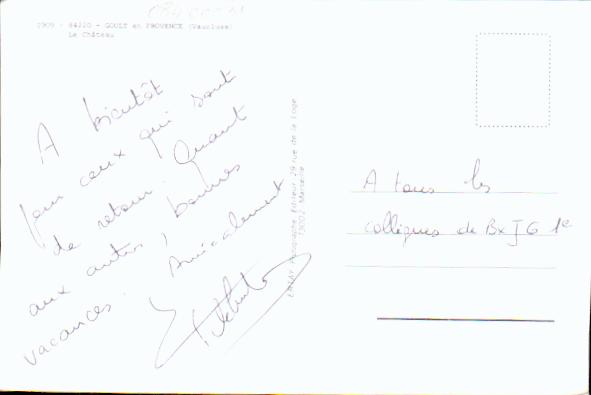 2909 - 84220 - GOULT en PROVENCE (Vaucluse)
Le Château
A bientôt
pour ceux qui sont
de retour. Quant
aux autres, bonnes
vacances. Amicalement
Photographe Editeur 29 rue de la Loge
Marseille
A tous les
collègues de Bx J G 1e